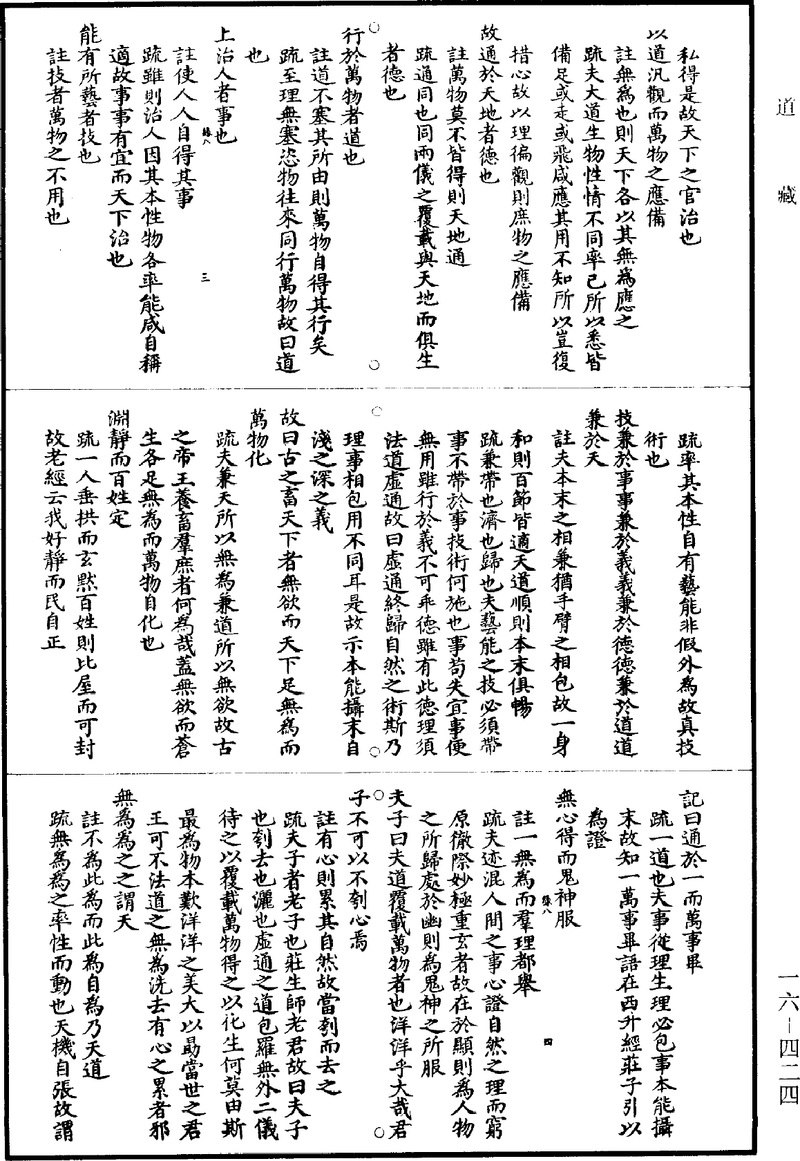 道藏
私得是故天下之官治也
以道汎觀而萬物之應備
註無為也則天下各以其無為應之
疏夫大道生物性情不同率己所以悉皆
備足或走或飛咸應其用不知所以豈復
措心故以理徧觀則庶物之應備
故通於天地者德也
註萬物莫不皆得則天地通
疏通同也同兩儀之覆載與天地而俱生
者德也
行於萬物者道也
註道不塞其所由則萬物自得其行矣
疏至理無塞恣物往來同行萬物故曰道
也
上治人者事也
註使人人自得其事
疏雖則治人因其本性物各率能咸自稱
適故事事有宜而天下治也
能有所藝者技也
註技者萬物之不用也
疏率其本性自有藝能非假外為故真技
術也
技兼於事事兼於義義兼於德德兼於道道
兼於天
註夫本末之相兼猶手臂之相包故一身
和則百節皆適天道順則本末俱暢
疏兼帶也濟也歸也夫藝能之技必須帶
事不帶於事技術何施也事苟失宜事便
無用雖行於義不可乖德雖有此德理須
法道虛通故曰虛通終歸自然之術斯乃
理事相包用不同耳是故示本能攝末自
淺之深之義
故曰古之畜天下者無欲而天下足無為而
萬物化
疏夫兼天所以無為兼道所以無欲故古
之帝王養畜羣庶者何為哉蓋無欲而蒼
生各足無為而萬物自化也
淵靜而百姓定
疏一人垂拱而玄默百姓則比屋而可封
故老經云我好靜而民自正
記曰通於一而萬事畢
疏一道也夫事從理生理必包事本能攝
末故知一萬事畢語在西升經莊子引以
為證
無心得而鬼神服
註一無為而羣理都舉
疏夫迹混人間之事心證自然之理而窮
原徹際妙極重玄者故在於顯則為人物
之所歸處於幽則為鬼神之所服
夫子曰夫道覆載萬物者也洋洋乎大哉君
子不可以不刳心焉
註有心則累其自然故當刳而去之
疏夫子者老子也莊生師老君故曰夫子
也刳去也灑也虛通之道包羅無外二儀
待之以覆載萬物得之以化生何莫由斯
最為物本歎洋洋之美大以勗當世之君
王可不法道之無為洗去有心之累者邪
無為為之之謂天
註不為此為而此為自為乃天道
疏無為為之率性而動也天機自張故謂
三
四
一六－四二四